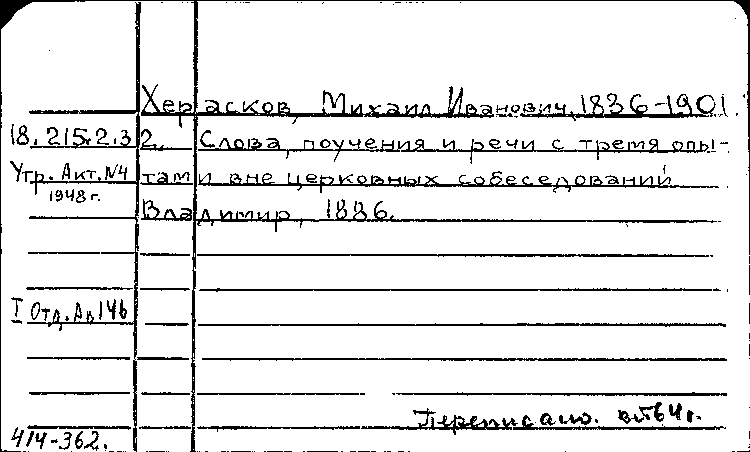 Херасков, Михаил Иванович, 1836-1901.
18.215.2.32. Слова, поучения и речи с тремя опы-
Утр. Акт. №4 тами вне церковных собеседований
1948 г.
Владимир, 1886.
I Отд. Ав 146
Переписано. 64 г.
414-362.